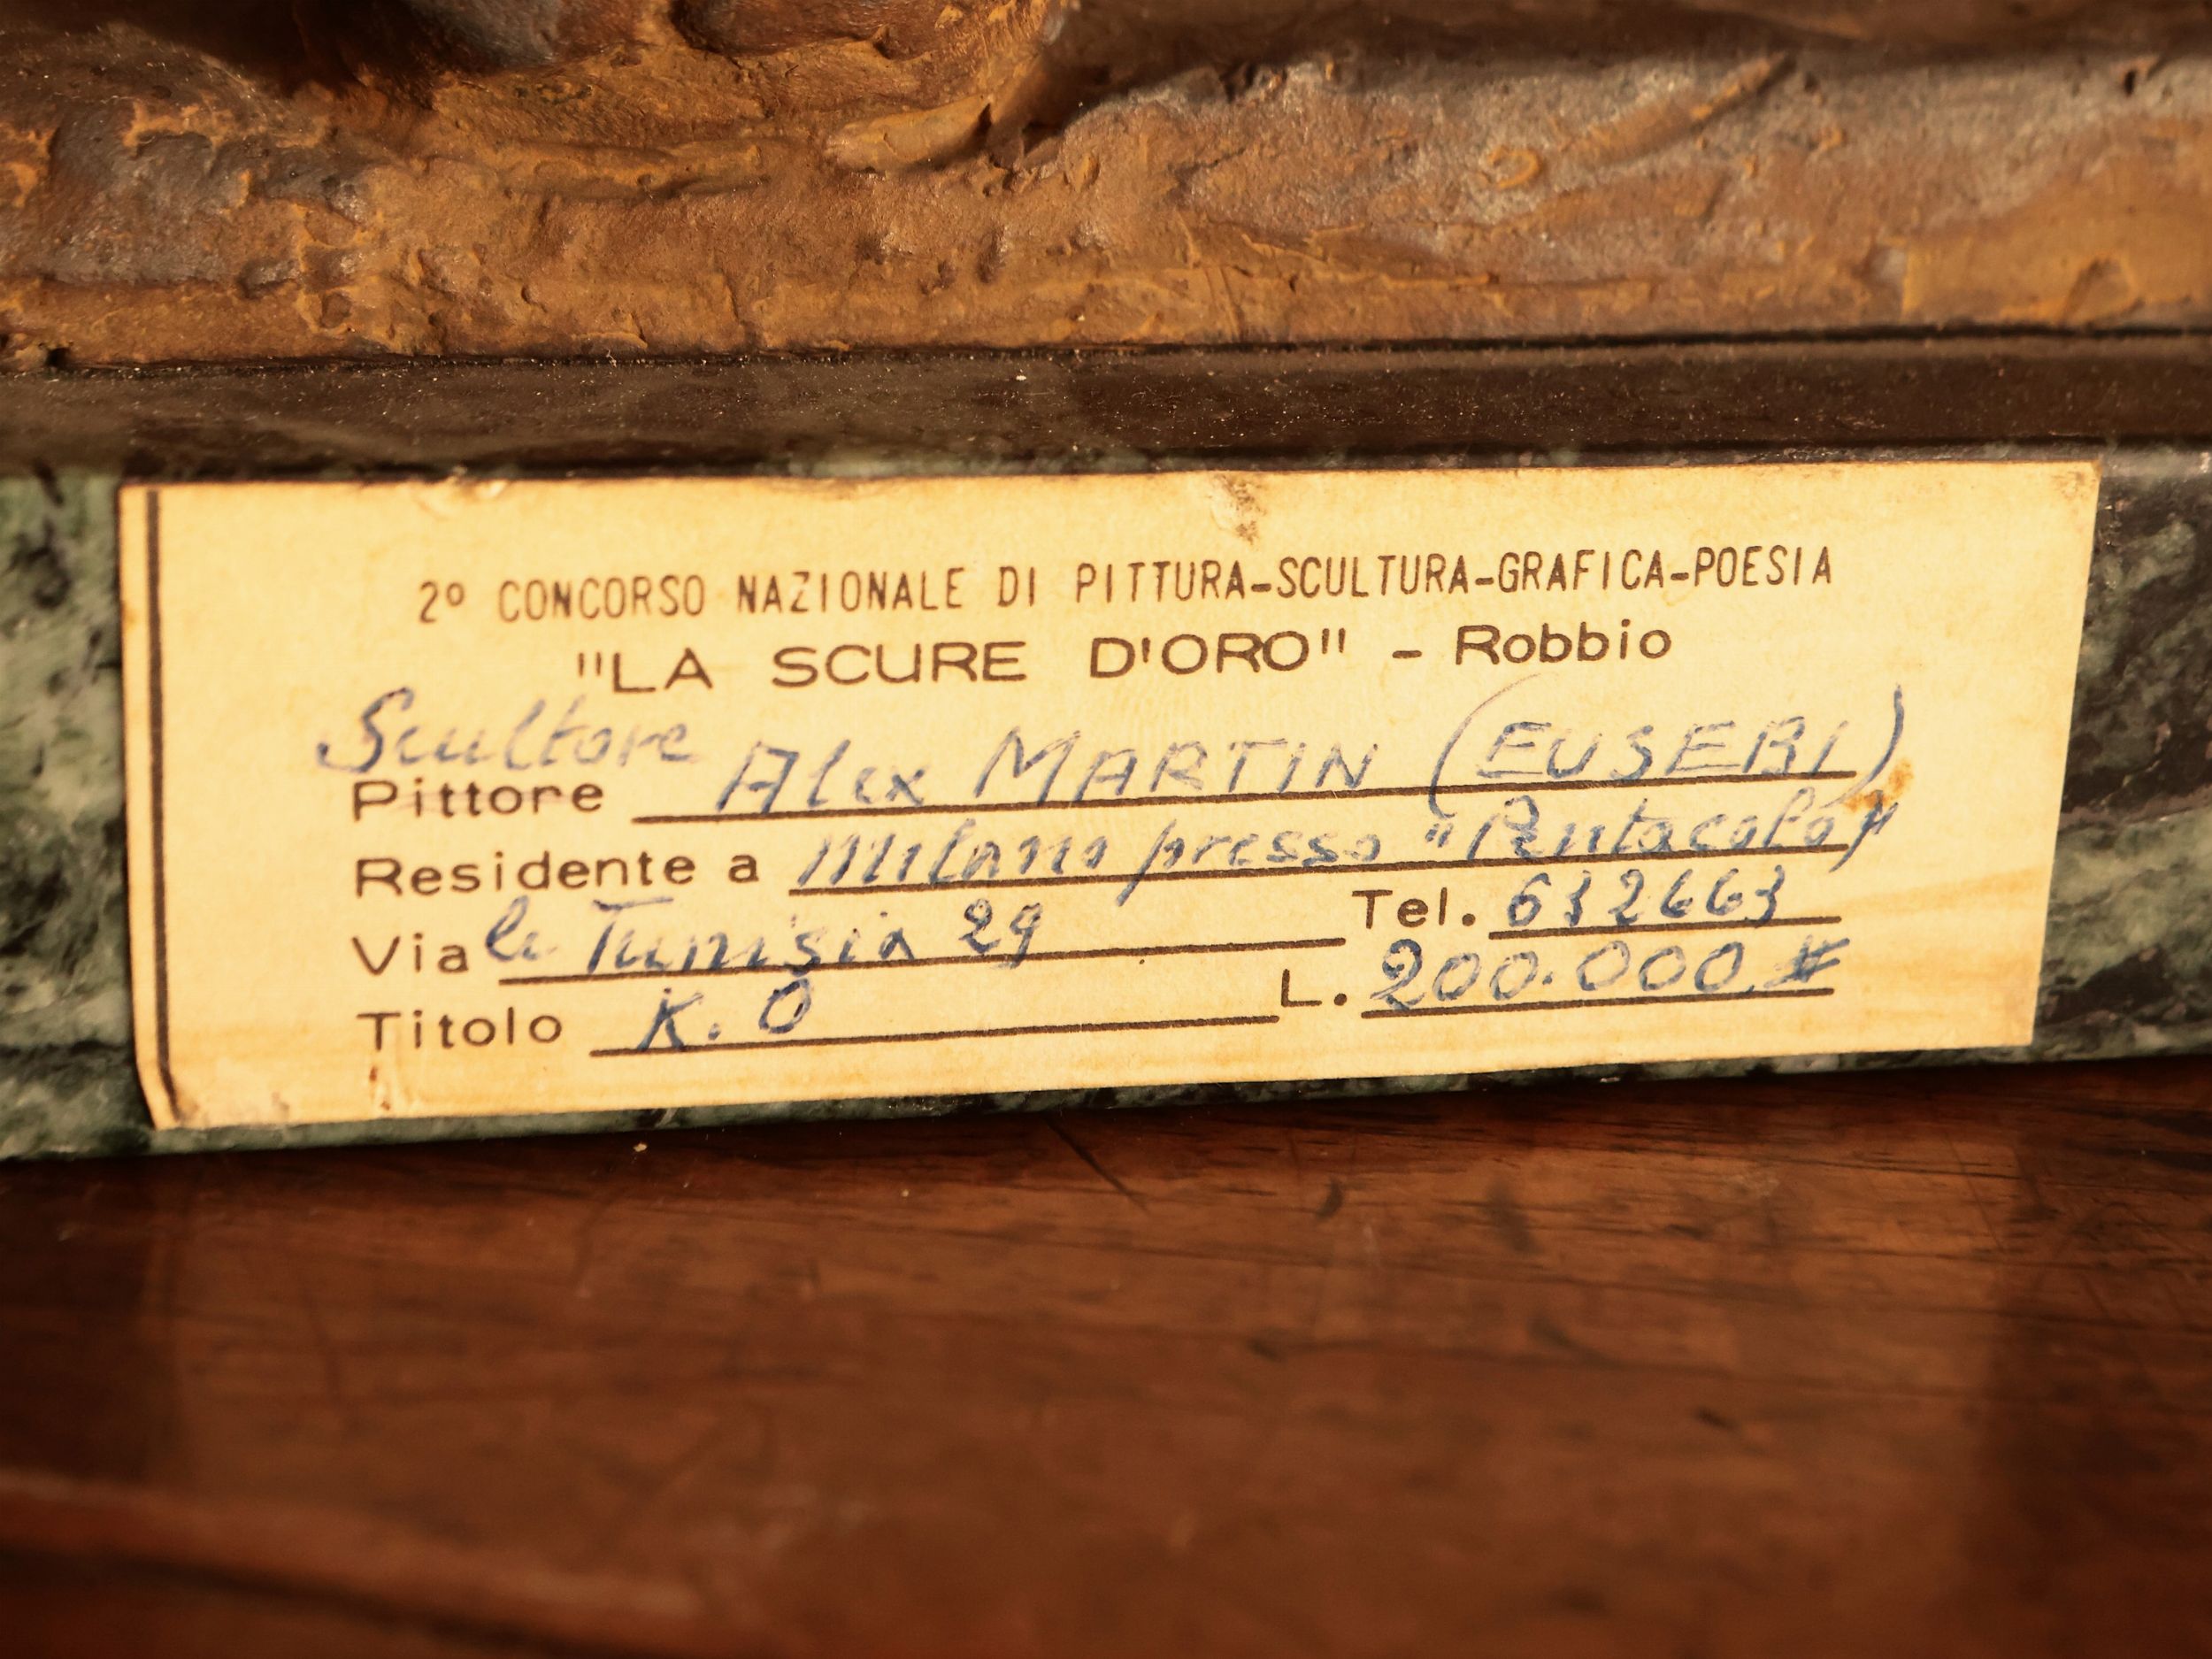 2° CONCORSO NAZIONALE DI PITTURA-SCULTURA-GRAFICA-POESIA
"LA SCURE D'ORO" - Robbio
Scultore
Pittore Alex MARTIN (EUSEBI)
Residente a Milano presso "Pentacolo"
Viale Tunisia 29 Tel. 632663
Titolo K.O L. 200.000 #